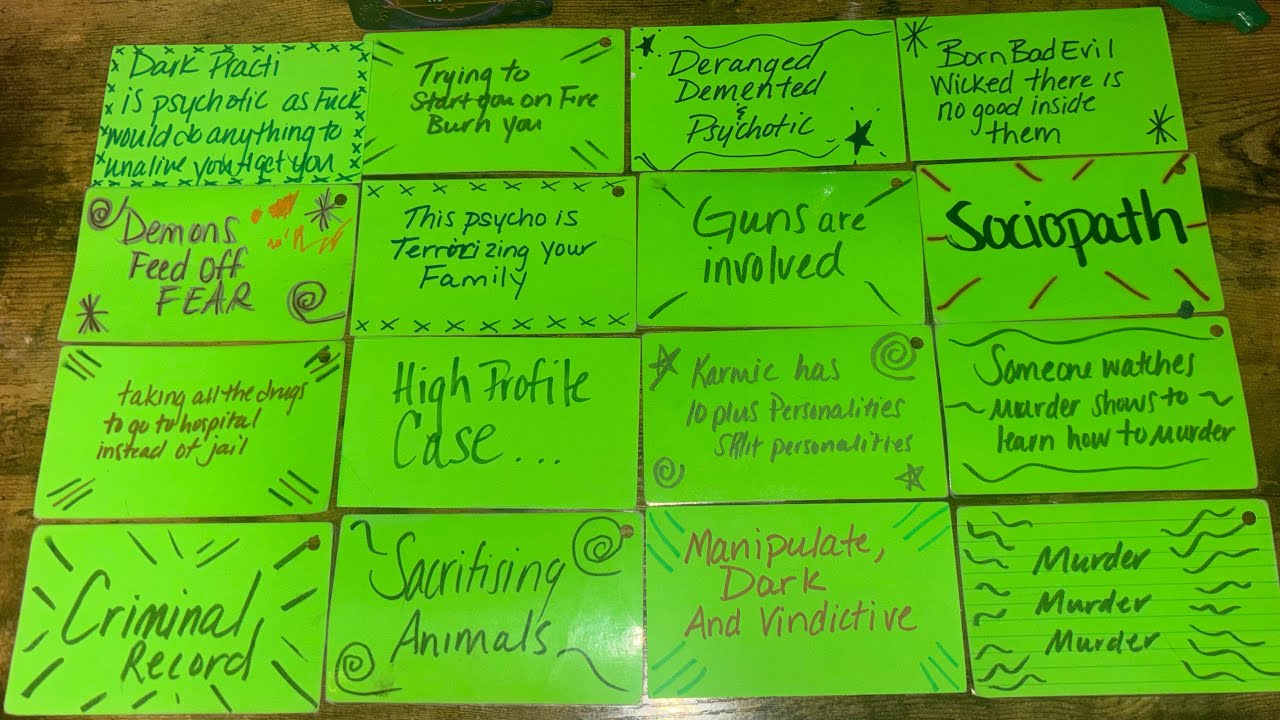 Dark Practi
is psychotic as Fuck
would do anything to
unalive you & get you
Trying to
Start you on Fire
Burn you
Deranged
Demented
&
Psychotic
Born Bad Evil
Wicked there is
no good inside
them
Demons
Feed off
FEAR
This psycho is
Terrorizing your
Family
Guns are
involved
Sociopath
taking all the drugs
to go to hospital
instead of jail
High Profile
Case...
Karmic has
10 plus Personalities
Split personalities
Someone watches
Murder shows to
learn how to Murder
Criminal
Record
Sacrifising
Animals
Manipulate,
Dark
And Vindictive
Murder
Murder
Murder